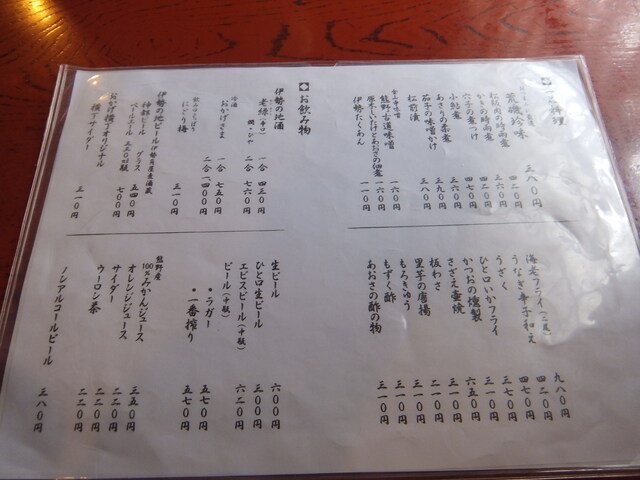 料理
荒磯珍味 三八〇円
松坂肉の時雨煮 四二〇円
かきの時雨煮 三六〇円
穴子の煮つけ 四二〇円
小鮎煮 四七〇円
あさりの柔煮 三六〇円
茄子の味噌かけ 三九〇円
松前漬 三八〇円
金山寺味噌
熊野古道味噌 一六〇円
原木しいたけとあおさの佃煮 一六〇円
伊勢たくあん 一一〇円
海老フライ(二尾) 九八〇円
うなぎ辛子和え 四二〇円
うざく 四七〇円
ひと口いかフライ 三七〇円
かつおの燻製 三一〇円
さざえ壷焼 六五〇円
板わさ 三一〇円
里芋の唐揚 二一〇円
もろきゅう 三一〇円
もずく酢 三一〇円
あおさの酢の物 三一〇円
お飲み物
伊勢の地酒
老緑(辛口) 一合 四三〇円
燗・ひや 二合 七六〇円
冷酒
おかげさま 一合 七五〇円
二合 一四〇〇円
にごり梅 三一〇円
伊勢の地ビール 伊勢角屋麦酒蔵
神都ビール グラス 五四〇円
ペールエール 三三〇ml瓶 七〇〇円
おかげ横丁オリジナル
横丁サイダー 三一〇円
生ビール 六〇〇円
ひと口生ビール 三〇〇円
エビスビール(中瓶) 六二〇円
ビール(中瓶)
・ラガー 五七〇円
・一番搾り 五七〇円
熊野産
100%みかんジュース 三五〇円
オレンジジュース 二二〇円
サイダー 二二〇円
ウーロン茶 二二〇円
ノンアルコールビール 三八〇円